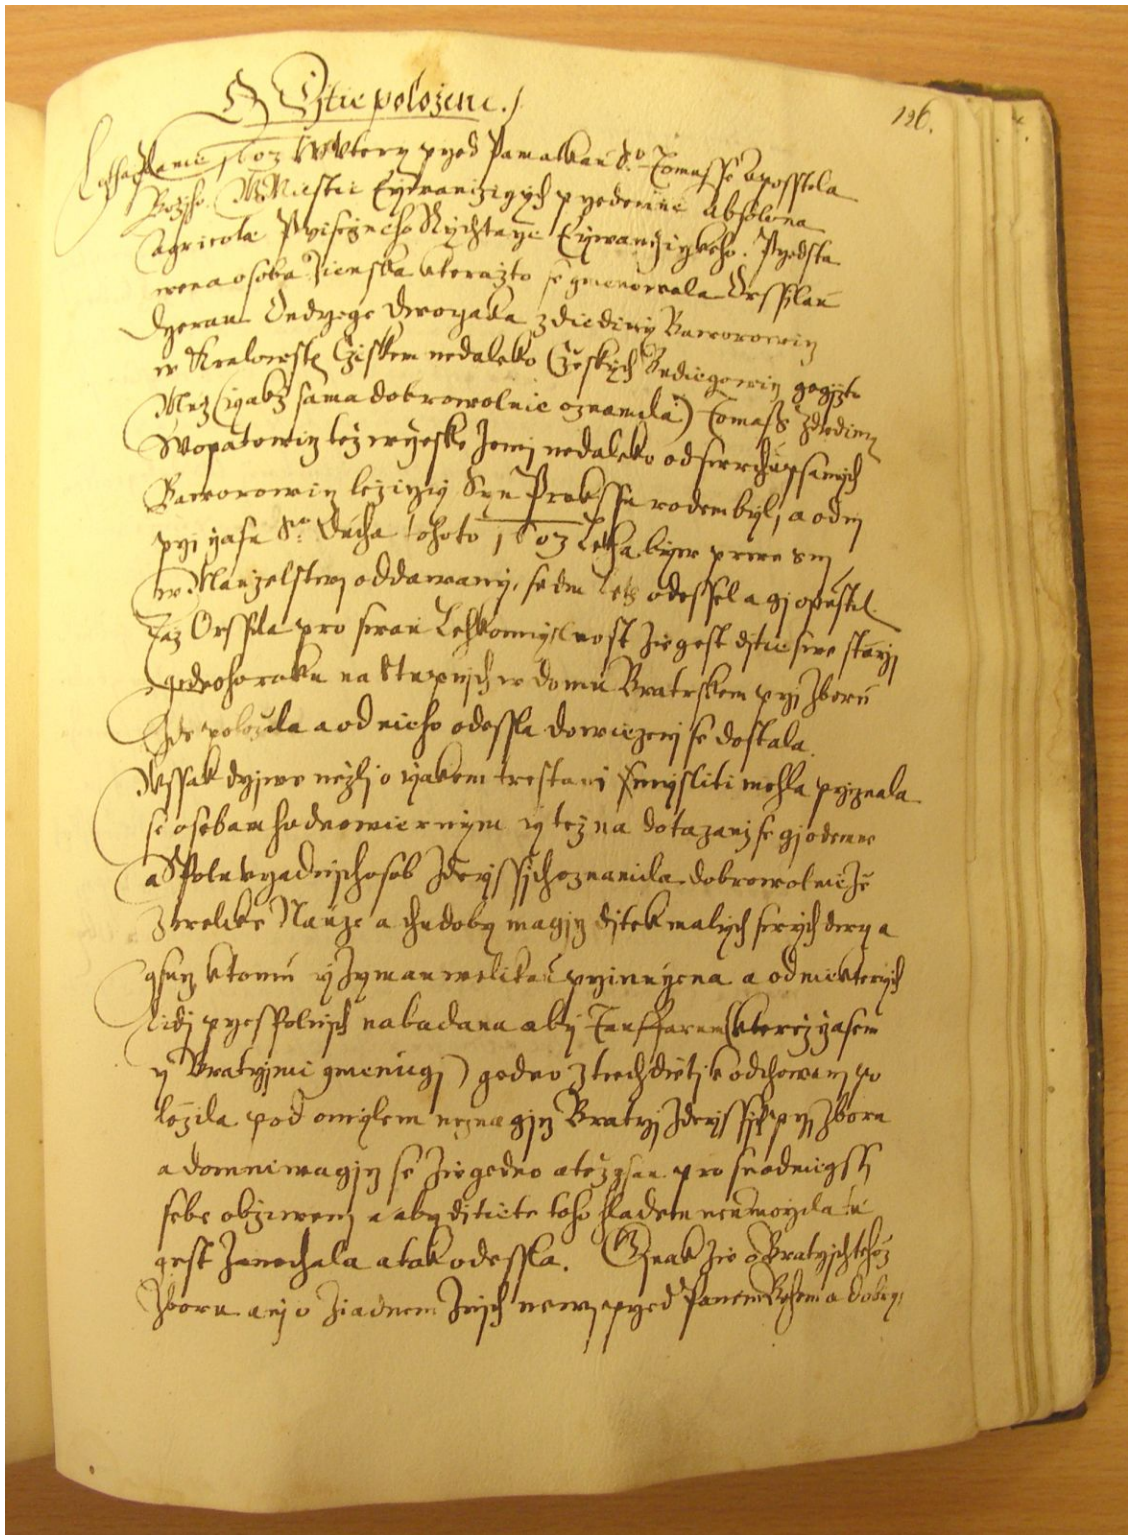 O Ditie polozene.
126.
Letha Panie 1603 W Vtery przed Pamatkau S° Tomasse Aposstola
Bozyho. W Miestie Eywanczyczych przedemne Absolona
Agricola Prisezneho Rychtarze Eywanczyczkeho. Przedsta
wena osoba Zienska kterazto se gmenowala Orssilau
Dczerau Ondrzege Dworzaka z diediny Baworowicz
w Kralowstwj Czieskem nedaleko Czeskych Budiegowicz gegizto
Muz (yakz sama dobrowolnie oznamila) Tomass z diediny
Swopatowicz tez w Czeske Zemi nedaleko od swrchupsanych
Baworowicz lezyczy Syn Prokssu rodem byl, a od nj
przi czasu S° Ducha tohoto 1603 Letha byw prwe s nj
w Manzelstwj oddawany, sedm Leth odessel a gj opustil.
Taz Orssila pro swau Lehkomyslnost zie gest ditie swe starzj
gednoho roku na stupnjch w domu Bratrskem przj Zboru
Zde polozila a od nieho odessla do wiezenj se dostala.
Wssak drzjwe nezlj o yakem trestanj smysliti mohla przyznala
se osobam hodnowiernym yz tez na dotazanj se gj odemne
a Spolu vrzadnjch osob Zdeyssjch oznamila dobrowolnie ze
z welike Nauze a chudoby magjcz djtek malych swych dwy a
gsucz k tomu y Zymau welikau przinucena a od niekterych
lidj przespolnjch nabadana aby Teuffarum (kterez czasem
y Bratrzjmi gmenugj) gedno z tiech dietj k odchowanj po
lozila pod omylem neznagjcz Bratrzj Zdeyssjch przj Zboru
a domniwagjcz se zie gedno a tez gsau pro snadniegssj
sebe obziwenj a aby ditiete toho hladem neumorzila tu
gest Zanechala a tak odessla. Ginak zie o Bratrzjch tehoz
Zboru anj o Ziadnem Zujch newj przed Panem Bohem a dobry